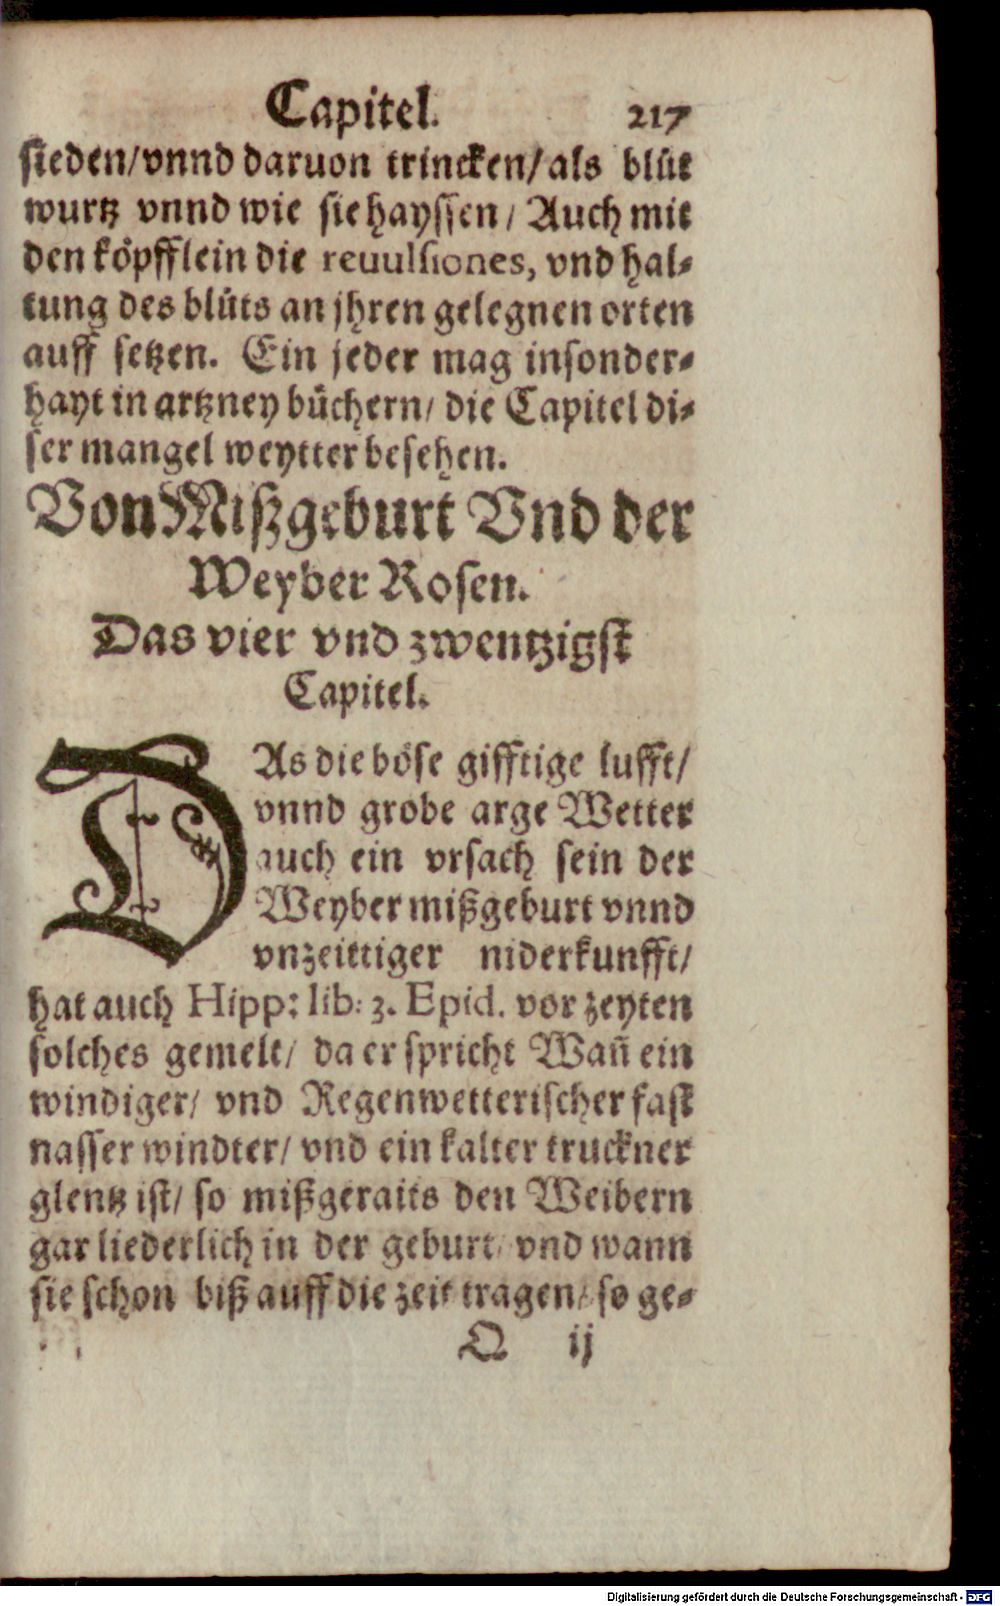 Capitel. 217
sieden/vnnd daruon trincken/als blůt
wurtz vnnd wie sie hayssen/ Auch mit
den köpfflein die reuulsiones, vnd hal-
tung des blůts an jhren gelegnen orten
auff setzen. Ein jeder mag insonder-
hayt in artzney bůchern/ die Capitel di-
ser mangel weytter besehen.
Von Mißgeburt Vnd der
Weyber Rosen.
Das vier vnd zwentzigst
Capitel.
DAs die böse gifftige lufft/
vnnd grobe arge Wetter
auch ein vrsach sein der
Weyber mißgeburt vnnd
vnzeittiger niderkunfft/
hat auch Hipp: lib: 3. Epid. vor zeyten
solches gemelt/ da er spricht Wañ ein
windiger/ vnd Regenwetterischer fast
nasser windter/ vnd ein kalter truckner
glentz ist/ so mißgeraits den Weibern
gar liederlich in der geburt/ vnd wann
sie schon biß auff die zeit tragen/ so ge-
Q ij
Digitalisierung gefördert durch die Deutsche Forschungsgemeinschaft - DFG